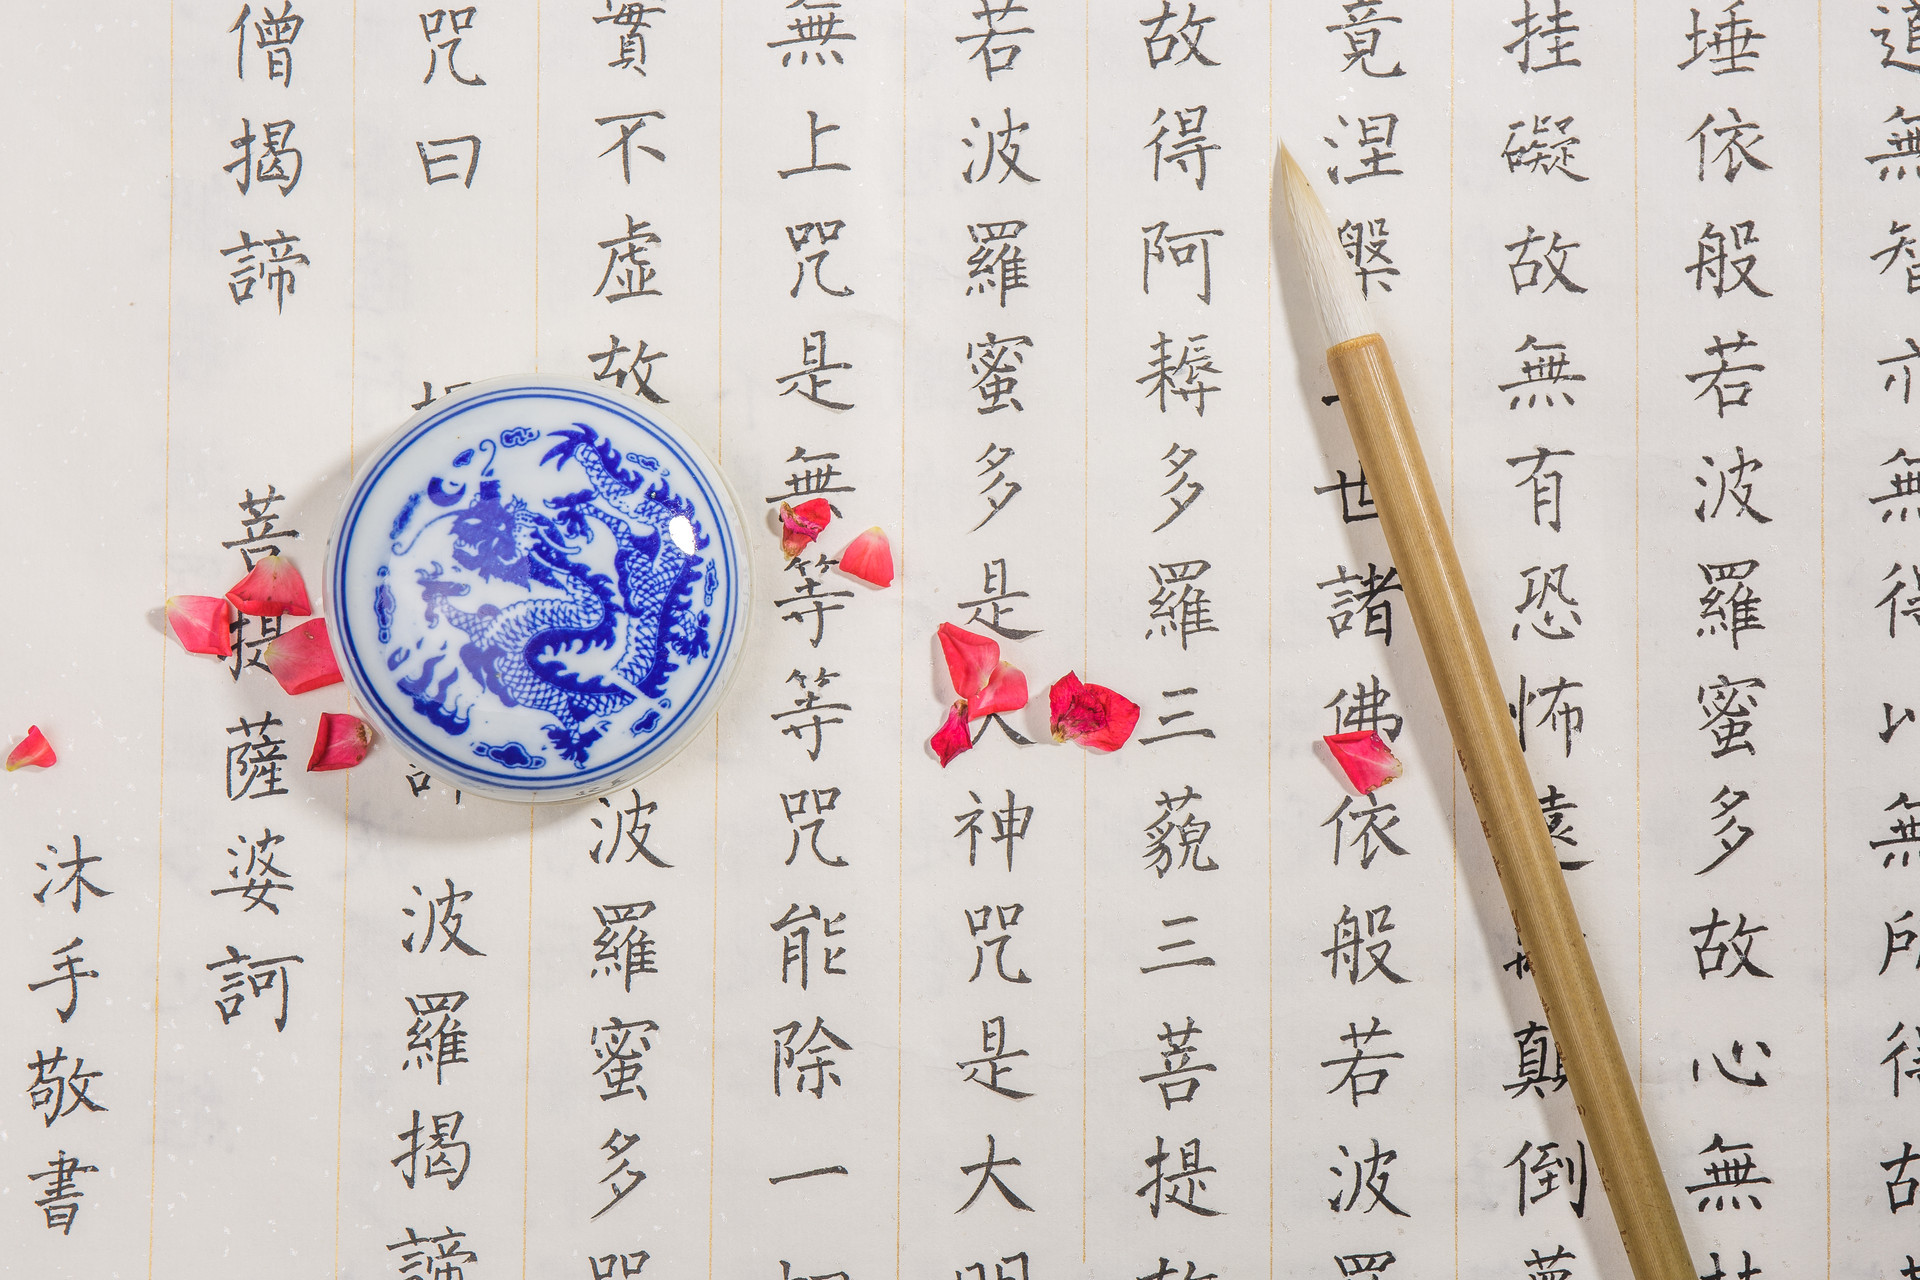 道無智亦無得以無所得故
埵依般若波羅蜜多故心無
挂礙故無有恐怖遠顛倒夢
竟涅槃世諸佛依般若波羅
故得阿耨多羅三藐三菩提故
若波羅蜜多是神咒是大明
無上咒是無等等咒能除一切
實不虚故波羅蜜多咒
咒曰 波羅揭諦
僧揭諦 菩提薩婆訶
沐手敬書